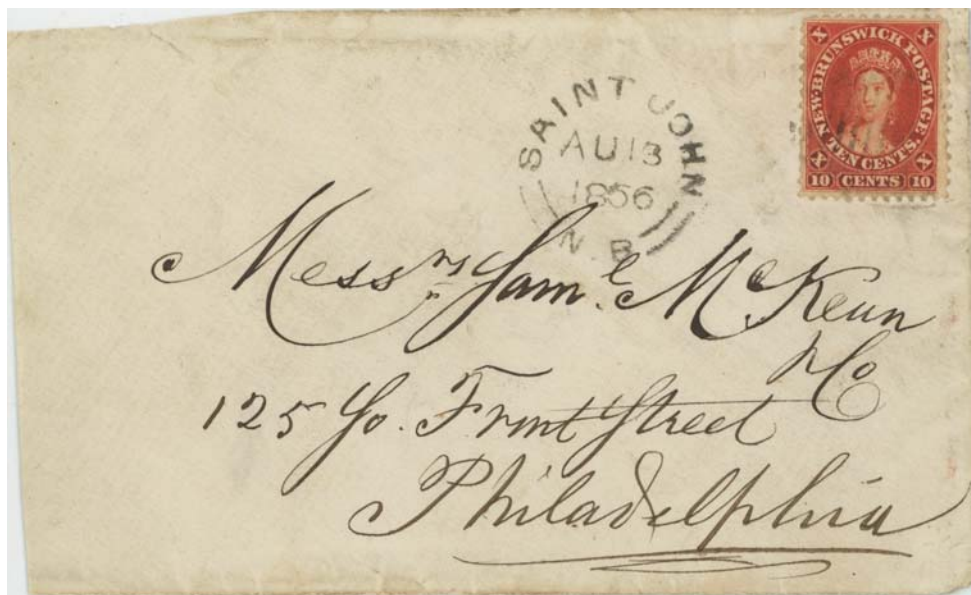 X NEW-BRUNSWICK POSTAGE. X
X TEN CENTS. X
10 CENTS 10
SAINT JOHN
AU 13
1856
N.B
Messrs Saml McKean
& Co
125 So. Front Street
Philadelphia